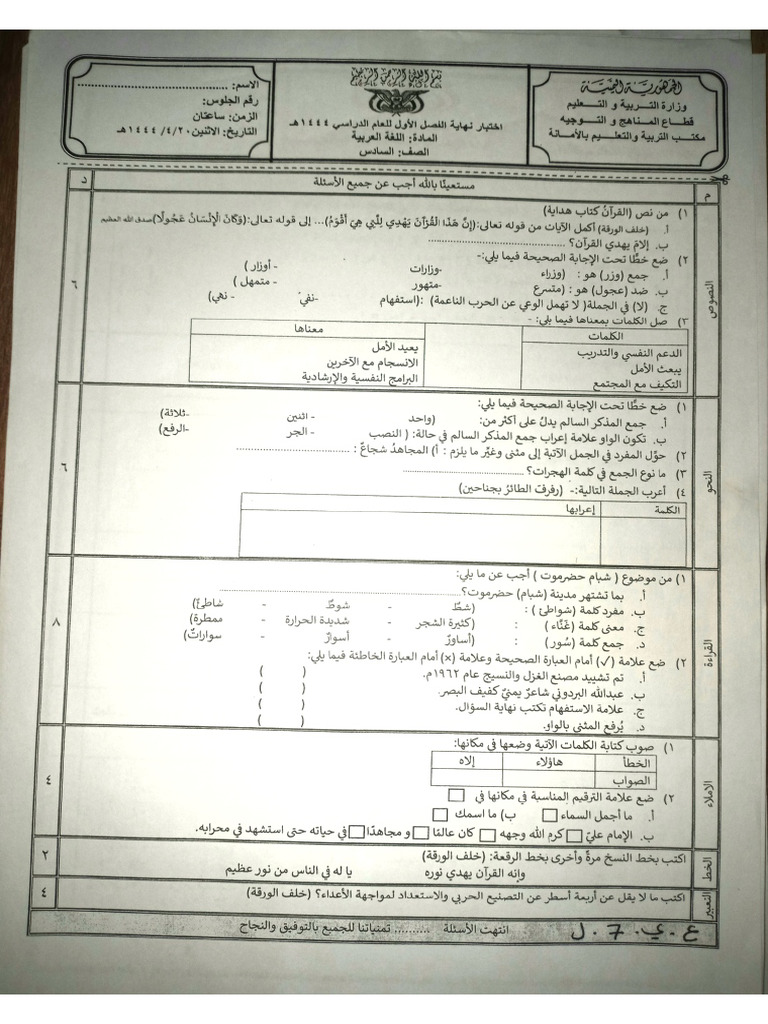 الجمهورية اليمنية
وزارة التربية و التـــعليم
قطاع المناهج و التـوجيه
مكتب التربية والتعليم بالأمانة
بسم الله الرحمن الرحيم
اختبار نهاية الفصل الأول للعام الدراسي ١٤٤٤هـ
المادة: اللغة العربية
الصف: السادس
الاسم: ........................................
رقم الجلوس:
الزمن: ساعتان
التاريخ: الاثنين ٤/٢٠/ ١٤٤٤هـ
م
مستعينًا بالله أجب عن جميع الأسئلة
د
النصوص
٦
١) من نص (القرآن كتاب هداية)
أ. (خلف الورقة) أكمل الآيات من قوله تعالى:(إِنَّ هَذَا الْقُرْآنَ يَهْدِي لِلَّتِي هِيَ أَقْوَمُ)... إلى قوله تعالى:(وَكَانَ الْإِنْسَانُ عَجُولًا)صدق الله العظيم
ب. إلامَ يهدي القرآن؟ ........................................
٢) ضع خطًّا تحت الإجابة الصحيحة فيما يلي:-
أ. جمع (وزر) هو : (وزراء -وزارات - أوزار )
ب. ضد (عجول) هو : (متسرع -متهور - متمهل )
ج. (لا) في الجملة( لا تهمل الوعي عن الحرب الناعمة) :(استفهام -نفي - نهي)
٣) صل الكلمات بمعناها فيما يلي: -
الكلمات معناها
الدعم النفسي والتدريب يعيد الأمل
يبعث الأمل الانسجام مع الآخرين
التكيف مع المجتمع البرامج النفسية والإرشادية
النحو
٦
١) ضع خطًّا تحت الإجابة الصحيحة فيما يلي:
أ. جمع المذكر السالم يدلُ على أكثر من: (واحد - اثنين -ثلاثة)
ب. تكون الواو علامة إعراب جمع المذكر السالم في حالة: ( النصب - الجر -الرفع)
٢) حوّل المفرد في الجمل الآتية إلى مثنى وغيّر ما يلزم : أ) المجاهدُ شجاعٌ : ........................................
٣) ما نوع الجمع في كلمة الهجرات؟........................................
٤) أعرب الجملة التالية:- (رفرفَ الطائرُ بجناحين)
الكلمة إعرابها
القراءة
٨
١) من موضوع ( شبام حضرموت ) أجب عن ما يلي:
أ. بما تشتهر مدينة (شبام) حضرموت؟........................................
ب. مفرد كلمة (شواطئ) : (شطٌ - شوطٌ - شاطئٌ)
ج. معنى كلمة (غَنَّاء) : (كثيرة الشجر - شديدة الحرارة - ممطرة)
د. جمع كلمة (سُور) : (أساورٌ - أسوارٌ - سواراتٌ)
٢) ضع علامة (√) أمام العبارة الصحيحة وعلامة (x) أمام العبارة الخاطئة فيما يلي:
أ. تم تشييد مصنع الغزل والنسيج عام ١٩٦٢م. ( )
ب. عبدالله البردوني شاعرٌ يمنيٌ كفيف البصر. ( )
ج. علامة الاستفهام تكتب نهاية السؤال. ( )
د. يُرفع المثنى بالواو. ( )
الإملاء
٤
١) صوب كتابة الكلمات الآتية وضعها في مكانها:
الخطأ هاؤلاء إلاه
الصواب
٢) ضع علامة الترقيم المناسبة في مكانها في
أ. ما أجمل السماء ب) ما اسمك
ب. الإمام عليّ كرم الله وجهه كان عالمًا و مجاهدًا في حياته حتى استشهد في محرابه.
الخط
٢
اكتب بخط النسخ مرةً وأخرى بخط الرقعة: (خلف الورقة)
وإنه القرآن يهدي نوره يا له في الناس من نور عظيم
التعبير
٤
اكتب ما لا يقل عن أربعة أسطر عن التصنيع الحربي والاستعداد لمواجهة الأعداء؟ (خلف الورقة)
ع . ي . 7 . ل
انتهت الأسئلة .......... تمنياتنا للجميع بالتوفيق والنجاح